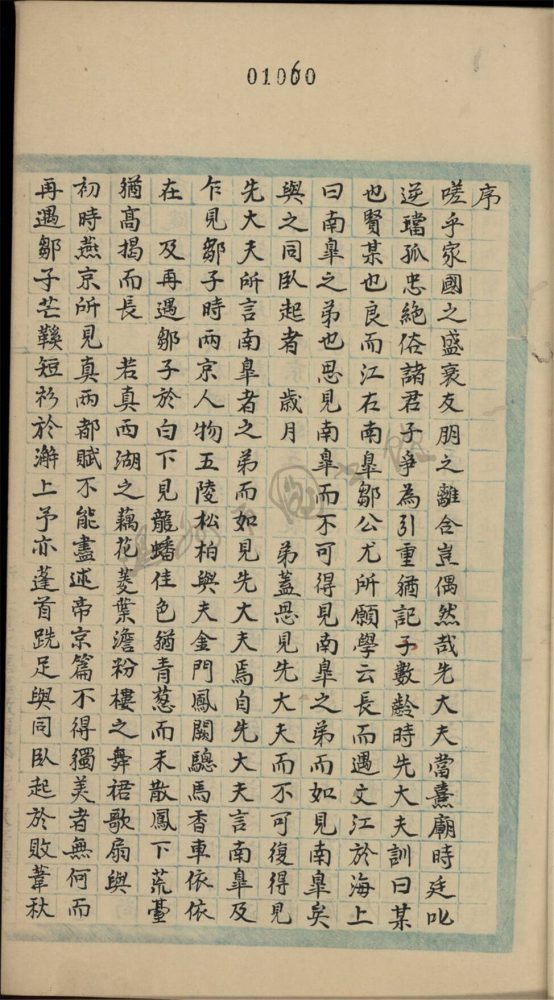 01060
序
嗟乎家國之盛衰友朋之離合豈偶然哉先大夫當熹廟時廷叱
逆璫孤忠絕俗諸君子爭為引重猶記子數齡時先大夫訓曰某
也賢某也良而江右南皐鄒公尤所願學云長而遇文江於海上
曰南皐之弟也思見南皐而不可得見南皐之弟而如見南皐矣
與之同臥起者 歲月 弟蓋思見先大夫而不可復得見
先大夫所言南皐者之弟而如見先大夫焉自先大夫言南皐及
乍見鄒子時兩京人物五陵松柏與夫金門鳳闕驄馬香車依依
在 及再遇鄒子於白下見龍蟠佳色猶青葱而未散鳳下荒臺
猶高揭而長 若真西湖之藕花菱葉澹粉樓之舞裙歌扇與
初時燕京所見真兩都賦不能盡述帝京篇不得獨美者無何而
再遇鄒子芒鞵短衫於澥上予亦蓬首跣足與同臥起於敗葦秋